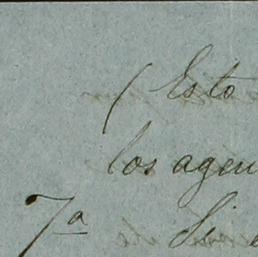 (Esto
los agen
7ª Si